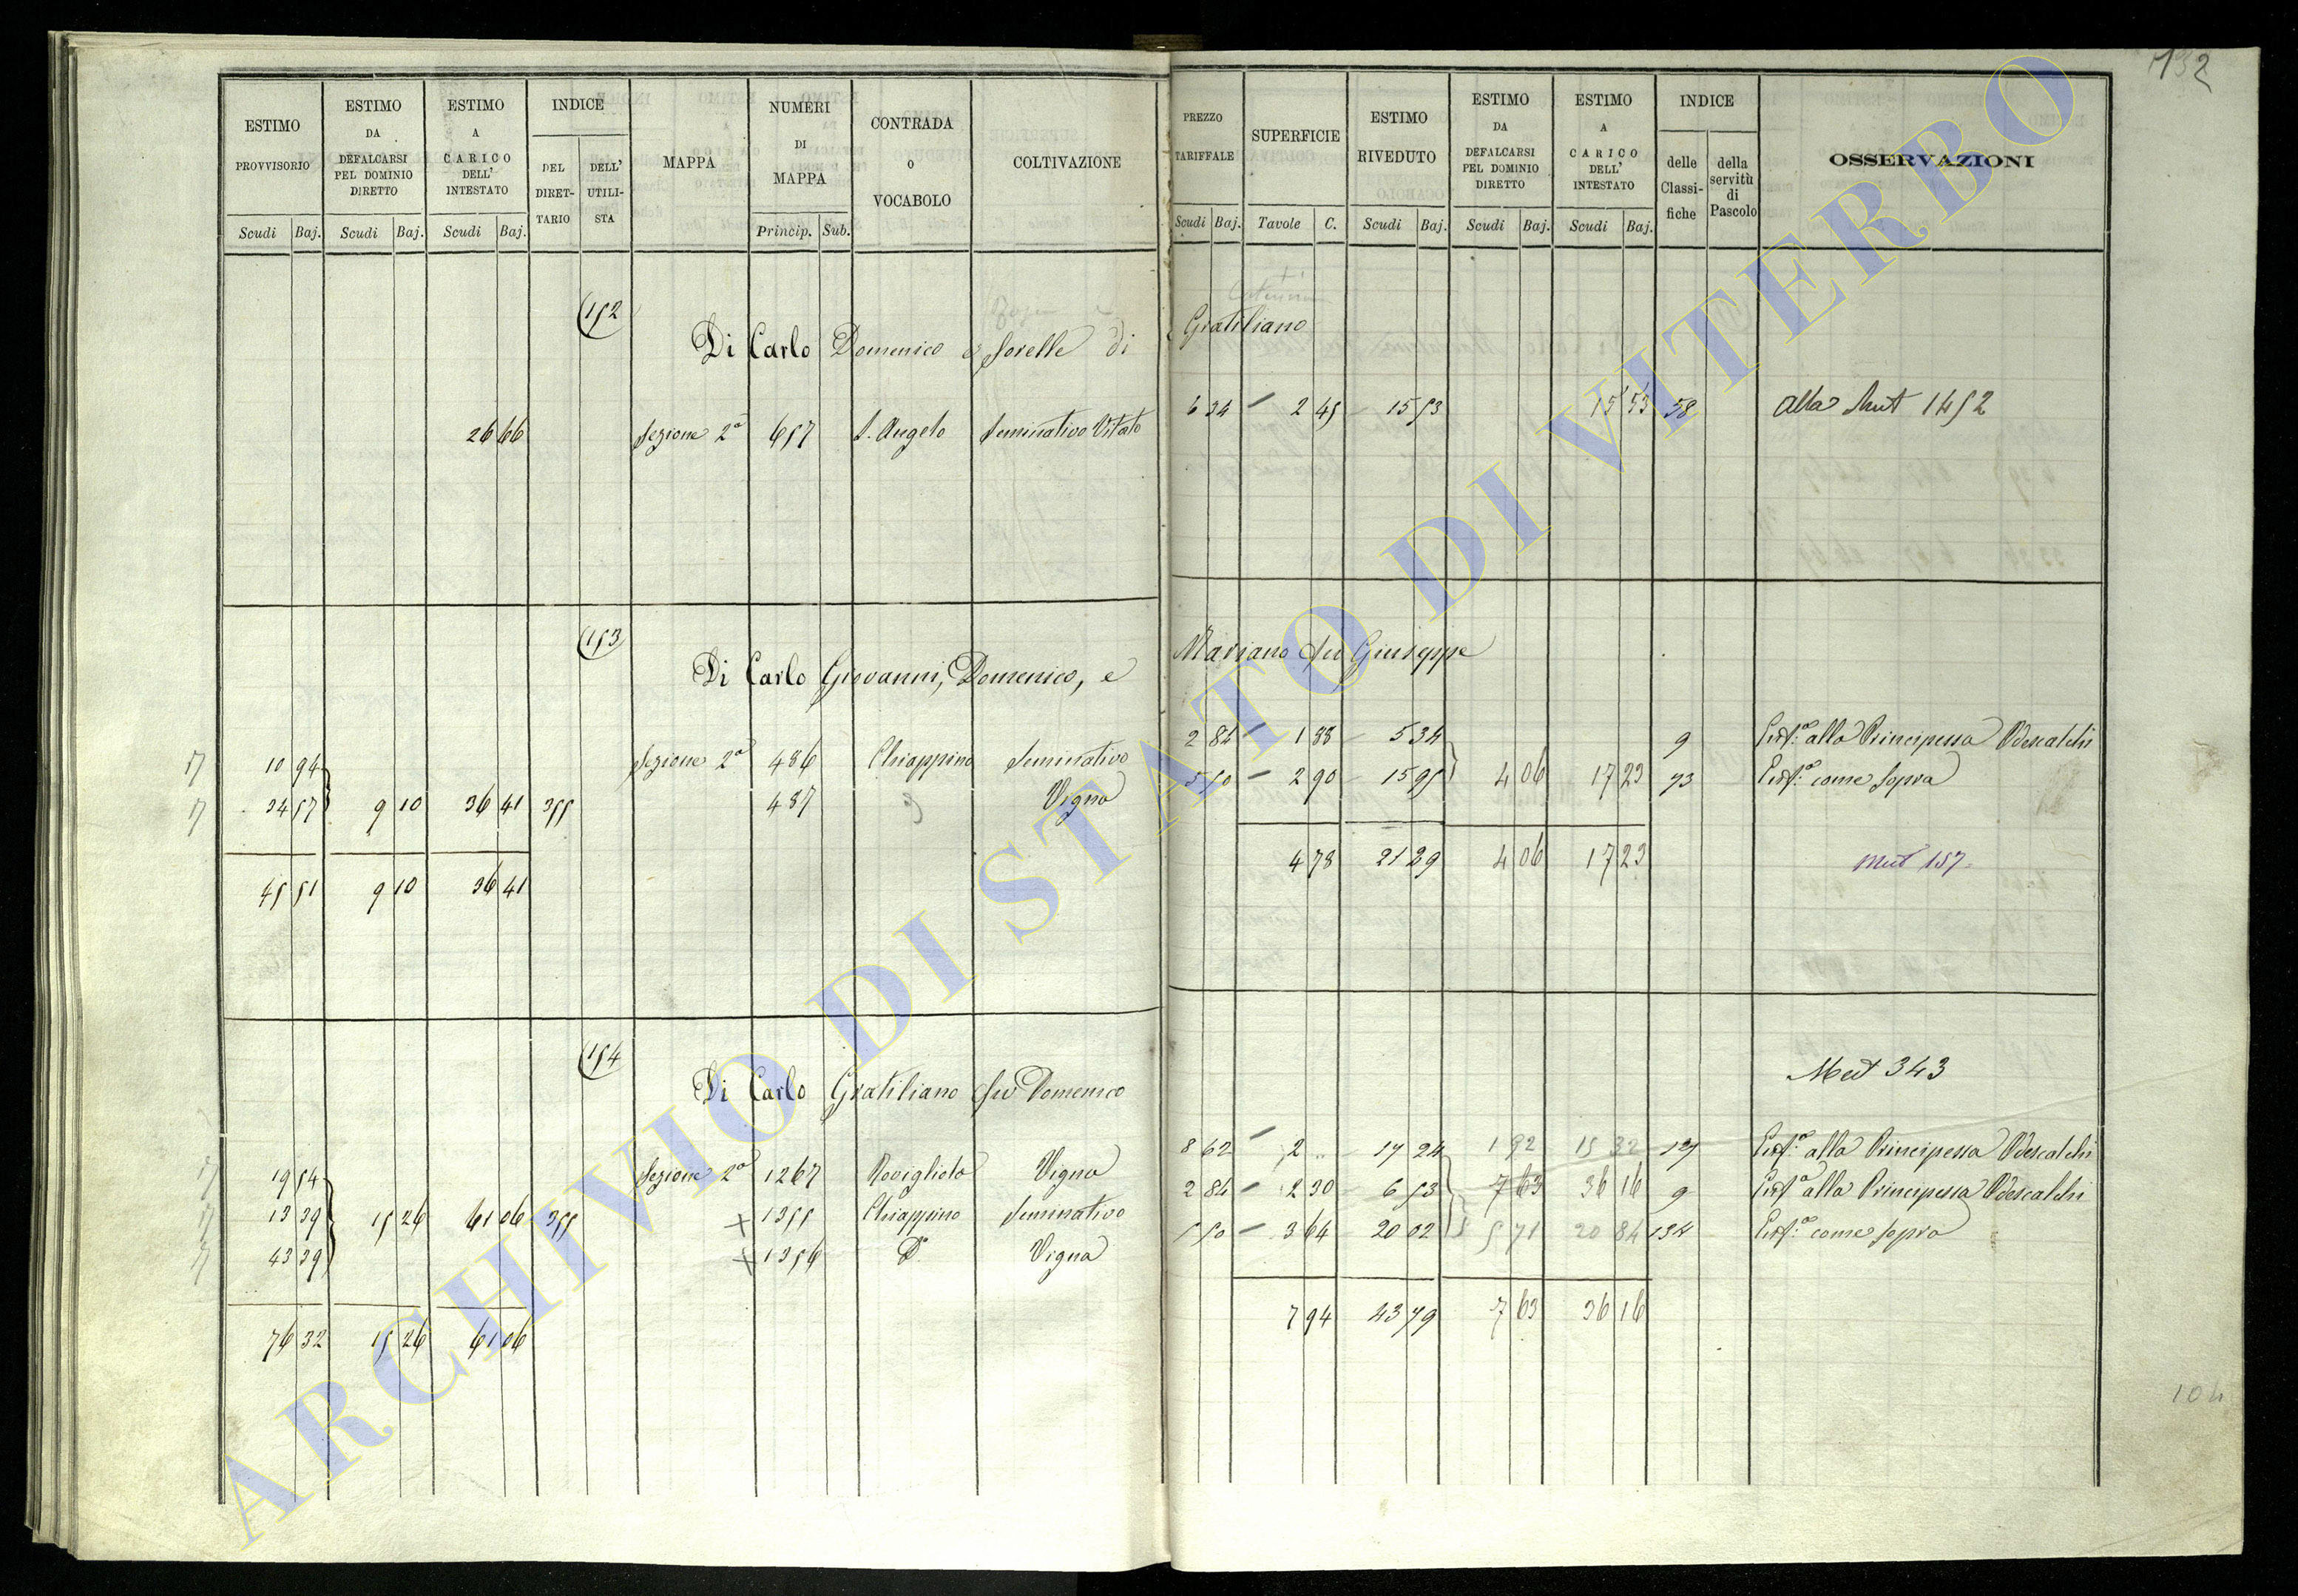 132
ESTIMO PROVVISORIO | ESTIMO DA DEFALCARSI PEL DOMINIO DIRETTO | ESTIMO A CARICO DELL' INTESTATO | INDICE DEL DIRETTARIO | DELL' UTILISTA | MAPPA | NUMERI DI MAPPA | CONTRADA O VOCABOLO | COLTIVAZIONE | PREZZO TARIFFALE | SUPERFICIE | ESTIMO RIVEDUTO | ESTIMO DA DEFALCARSI PEL DOMINIO DIRETTO | ESTIMO A CARICO DELL' INTESTATO | INDICE delle Classifiche | della servitù di Pascolo | OSSERVAZIONI
Scudi | Baj. | Scudi | Baj. | Scudi | Baj. | Princip. | Sub. | Scudi | Baj. | Tavole | C. | Scudi | Baj. | Scudi | Baj. | Scudi | Baj.
152
Di Carlo Domenico e sorelle di Gratiliano
26 66 | Sezione 2a | 657 | S. Angelo | Seminativo Vitato | 6 34 | 2 45 | 15 53 | 15 53 | 58 | Alla Mut 1452
153
Di Carlo Giovanni, Domenico, e Mariano fu Giuseppe
17 | 10 94 | Sezione 2a | 486 | Chiappino | Seminativo | 2 84 | 1 88 | 5 34 | 9 | Enf.a alla Principessa Odescalchi
17 | 34 57 | 9 10 | 36 41 | 355 | 487 | Vigna | 5 50 | 2 90 | 15 95 | 4 06 | 17 23 | 73 | Enf.a come sopra
45 51 | 9 10 | 36 41 | 4 78 | 21 29 | 4 06 | 17 23 | Mut 157
154
Di Carlo Gratiliano fu Domenico
Mut 343
17 | 19 54 | Sezione 2a | 1267 | Roviglieto | Vigna | 8 62 | 2 .. | 17 24 | 1 92 | 15 32 | 127 | Enf.a alla Principessa Odescalchi
17 | 13 39 | 15 26 | 61 06 | 355 | + 1355 | Chiappino | Seminativo | 2 84 | 2 30 | 6 53 | 7 63 | 36 16 | 9 | Enf.a alla Principessa Odescalchi
17 | 43 39 | + 1356 | D.o | Vigna | 5 50 | 3 64 | 20 02 | 5 71 | 20 84 | 134 | Enf.a come sopra
76 32 | 15 26 | 61 06 | 7 94 | 43 79 | 7 63 | 36 16
104
ARCHIVIO DI STATO DI VITERBO